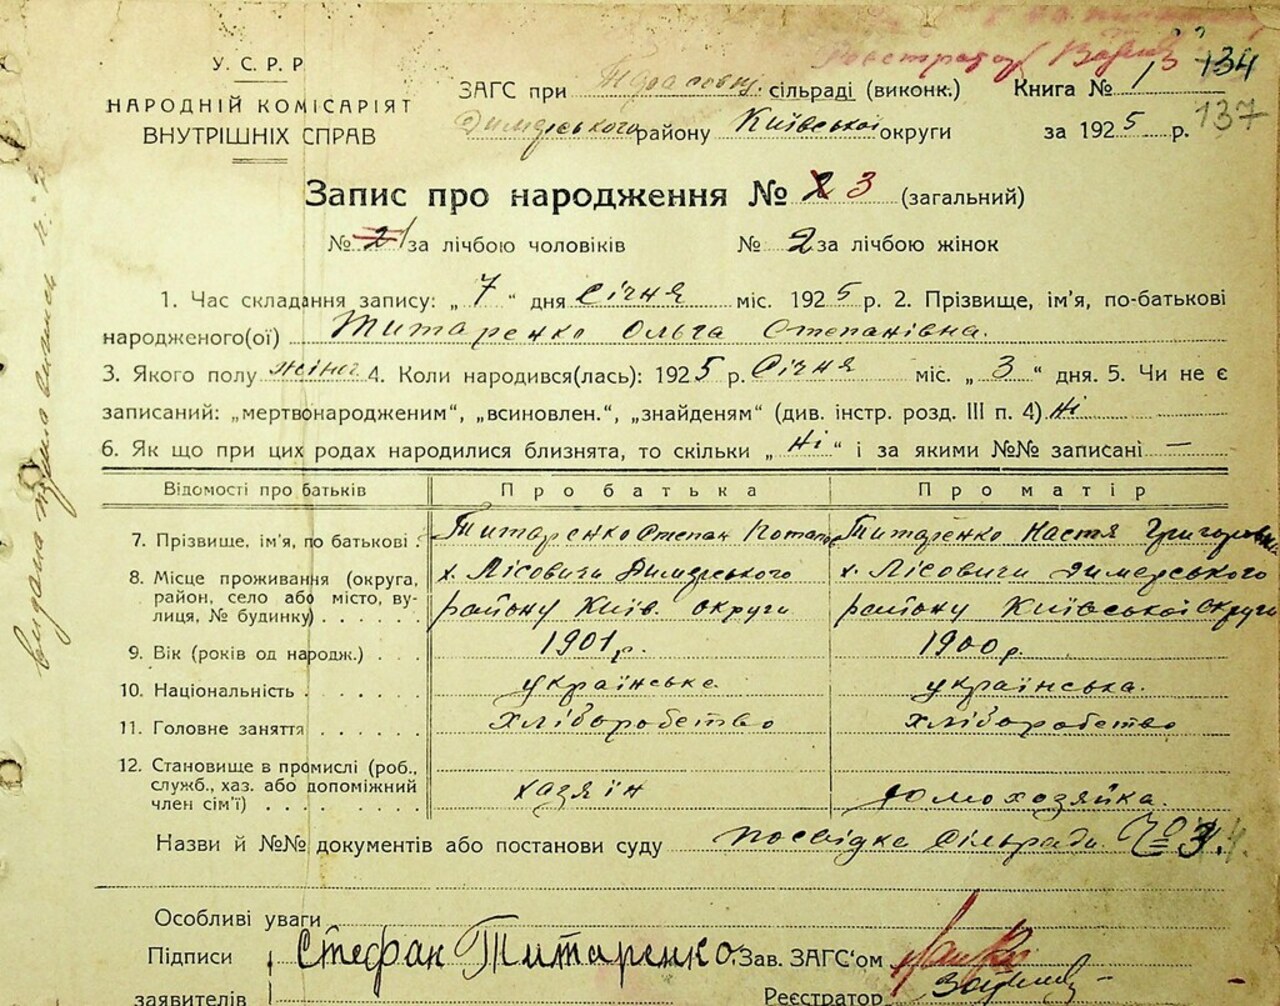 Реєстратор
У. С. Р. Р.
НАРОДНІЙ КОМІСАРІЯТ
ВНУТРІШНІХ СПРАВ
ЗАГС при сільраді (виконк.) Книга № 1 134
Димерського району Київської округи за 1925 р. 137
Запис про народження № 2 3 (загальний)
№ 21 за лічбою чоловіків № 2 за лічбою жінок
1. Час складання запису: „ 7 “ дня Січня міс. 1925 р. 2. Прізвище, ім’я, по-батькові
народженого(ої) Титаренко Ольга Степанівна.
3. Якого полу жіноч 4. Коли народився(лась): 1925 р. Січня міс. „ 3 “ дня. 5. Чи не є
записаний: „мертвонародженим“, „всиновлен.“, „знайденям“ (див. інстр. розд. III п. 4) ні
6. Як що при цих родах народилися близнята, то скільки „ ні “ і за якими №№ записані —
Відомості про батьків Про батька Про матір
7. Прізвище, ім’я, по батькові . Титаренко Степан Потапо Титаренко Настя Григоровна
8. Місце проживання (округа, х. Лісовичи Димерського х. Лісовичи Димерського
район, село або місто, ву-
лиця, № будинку) . . . . . . району Київ. округи району Київської округи
9. Вік (років од народж.) . . . 1901 р. 1900 р.
10. Національність . . . . . . . українське українська.
11. Головне заняття . . . . . . хліборобство хліборобство
12. Становище в промислі (роб.,
служб., хаз. або допоміжний хазяїн домохозяйка.
член сім’ї) . . . . . . . . .
Назви й №№ документів або постанови суду посвідка Сільради №
Особливі уваги
Підписи Стефан Титаренко. Зав. ЗАГС‘ом
заявителів Реєстратор
видана